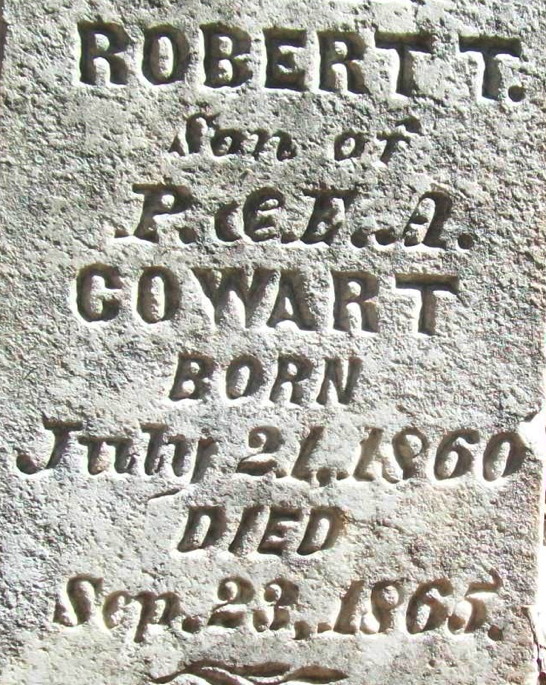 ROBERT T.
Son of
P. & E. A.
COWART
BORN
July 21, 1860
DIED
Sep. 23, 1865.